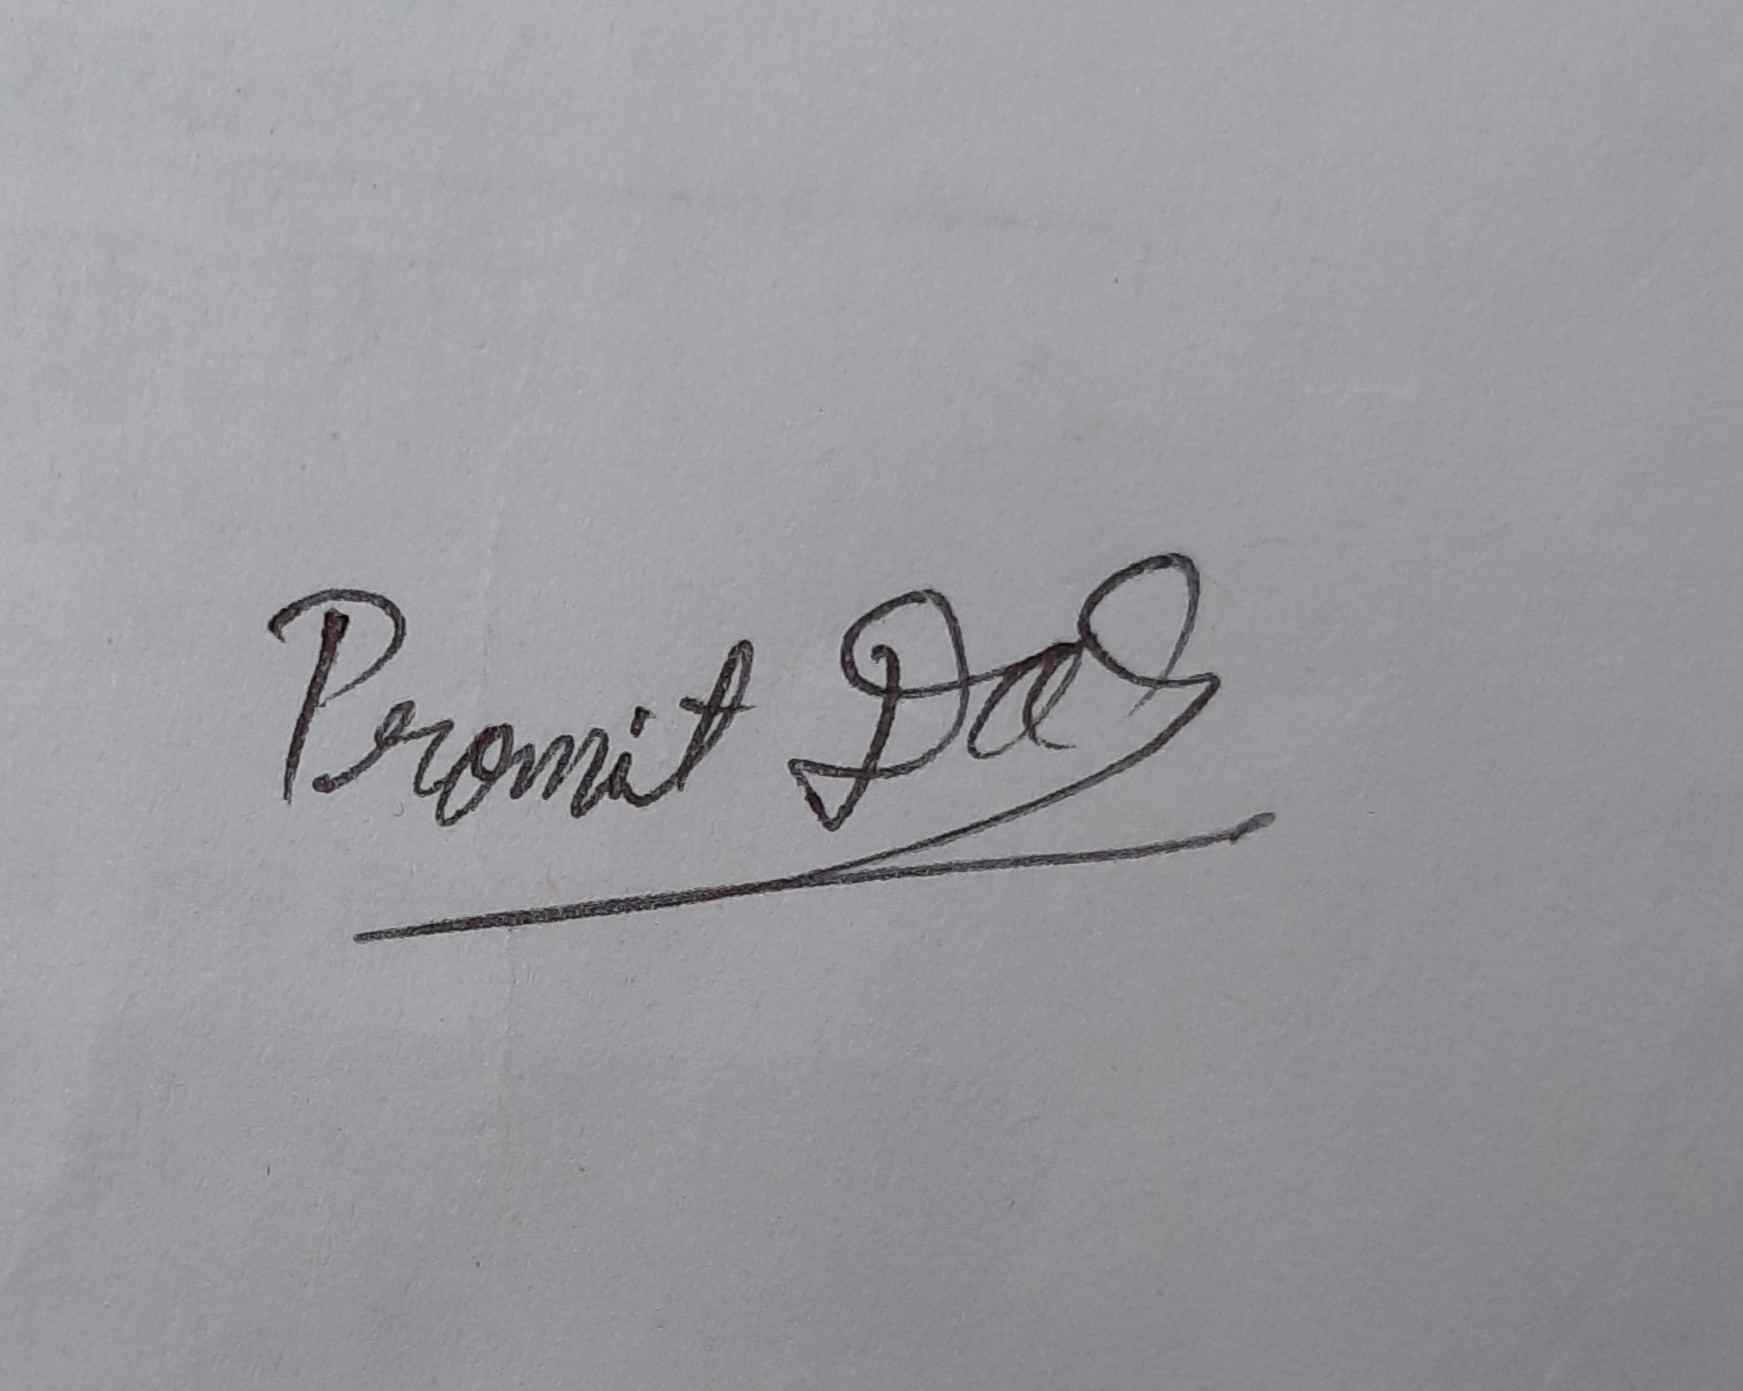 Promit Das